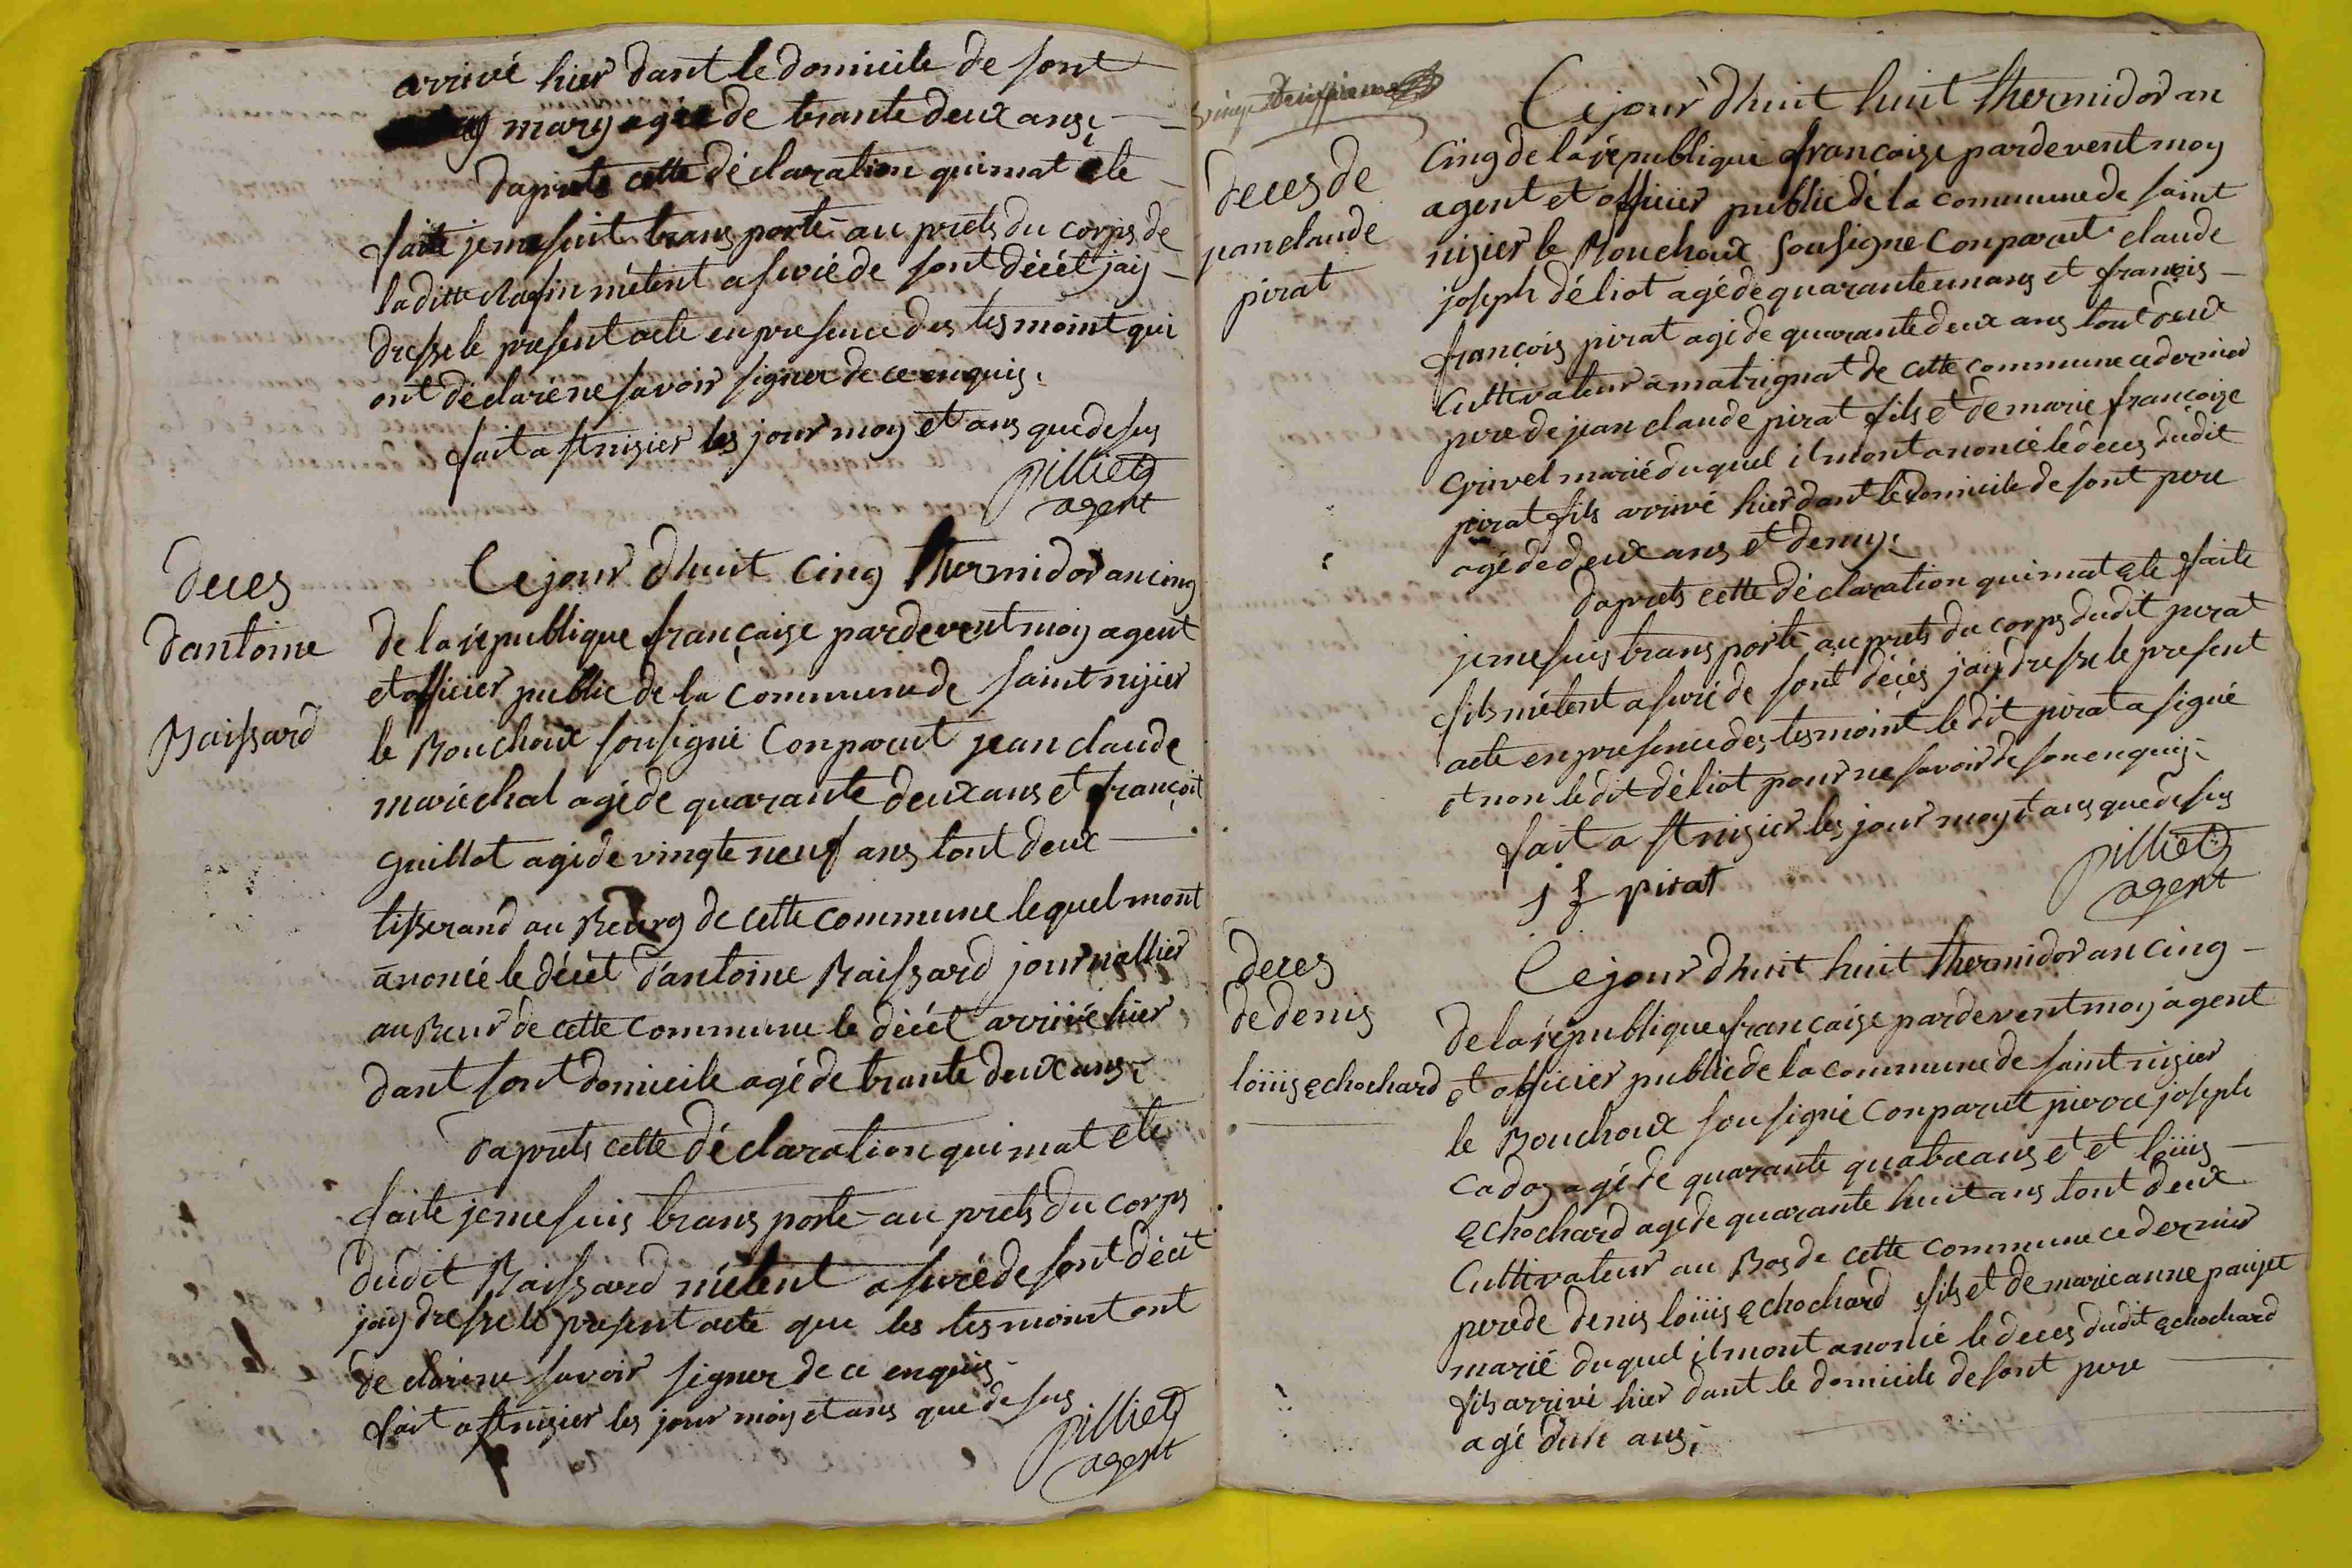 arrivé hier dant le domicile de sont
mary agée de trante deux ans.
daprets cette déclaration qui mat ete
faite je me suit trans porté au prets du corps de
laditte métent asuré de sont décét jaÿ
dressé le present acte en presence des tesmoint qui
ont déclaré ne savoir signer de ce enquis.
fait a st nisier les jour moy et ans que desus
pilliet
agent
deces
dantoine
Baissard
Ce jour dhuit cinq thermidor an cinq
de la republique française pardevent moy agent
et officier public de la commune de saint nisier
le Bouchoux sousigné Conparut jean claude
maréchal agé de quarante deux ans et françoit
guillot agé de vingte neuf ans tout deux
tisserand au Bourg de cette commune lequel mont
anoncé le décét d'antoine Baissard journallier
au Bour de cette commune le décét arrivé hier
dant sont domicile agé de trante deux ans.
daprets cette déclaration qui mat ete
faite je me suis trans porté au prets du corps
dudit Baissard métent asuré de sont décét
jaÿ dressé le present acte que les tesmoint ont
declaré ne savoir signer de ce enquis
fait a st nisier les jour moy et ans que desus
pilliet
agent
deces de
jean claude
pirat
Ce jour dhuit huit thermidor an
cinq de la republique françoise pardevent moy
agent et officier public de la commune de saint
nisier le Bouchoux sousigné Conparut claude
joseph déliot agé de quarante un ans et françois
françois pirat agé de quarante deux ans tout deux
Cultivateur a matrignat de cette commune ce dernier
pere de jean claude pirat fils et de marie françoise
grivel marié duquel il mont anoncé le deces dudit
pirat fils arrivé hier dant le domicile de sont pere
agé de deux ans et demy.
daprets cette déclaration qui mat ete faite
je me suis trans porté au prets du corps dudit pirat
fils métent asuré de sont déces jaÿ dressé le present
acte en presence des tesmoint le dit pirat a signé
et non le dit déliot pour ne savoir de son enquis.
fait a st nisier les jour moy et ans que desus
j f pirat
pilliet
agent
deces
de denis
loüis Echochard
Ce jour dhuit huit thermidor an cinq
de la republique françaisé pardevent moy agent
et officier public de la commune de saint nisier
le Bouchoux sousigné Conparut pierre joseph
Cadoz agé de quarante quatre ans et et loüis
Echochard agé de quarante huit ans tout deux
Cultivateur au Bos de cette commune ce dernier
pere de denis loüis Echochard fils et de marie anne paujet
marié duquel il mont anoncé le deces dudit Echochard
fils arrivé hier dant le domicile de sont pere
agé dun ans.